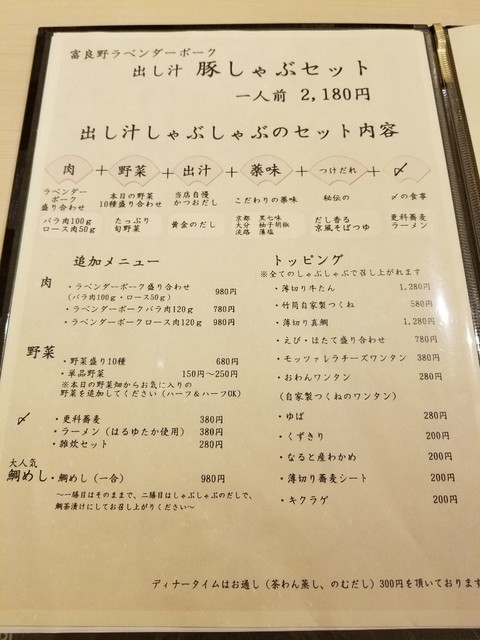 富良野ラベンダーポーク
出し汁 豚しゃぶセット
一人前 2,180円
出し汁しゃぶしゃぶのセット内容
肉 + 野菜 + 出汁 + 薬味 + つけだれ + 〆
ラベンダーポーク盛り合わせ 本日の野菜10種盛り合わせ 当店自慢かつおだし こだわりの薬味 秘伝の 〆の食事
バラ肉100g ロース肉50g たっぷり旬野菜 黄金のだし 京都 黒七味 大分 柚子胡椒 淡路 藻塩 だし香る京風そばつゆ 更科蕎麦 ラーメン
追加メニュー
肉
・ラベンダーポーク盛り合わせ 980円
(バラ肉100g・ロース50g)
・ラベンダーポークバラ肉120g 780円
・ラベンダーポークロース肉120g 980円
野菜
・野菜盛り10種 680円
・単品野菜 150円～250円
※本日の野菜畑からお気に入りの
野菜を追加してください(ハーフ&ハーフOK)
〆
・更科蕎麦 380円
・ラーメン(はるゆたか使用) 380円
・雑炊セット 280円
大人気
鯛めし・鯛めし(一合) 980円
～一膳目はそのままで、二膳目はしゃぶしゃぶのだしで、
鯛茶漬けにしてお召し上がりください～
トッピング
※全てのしゃぶしゃぶで召し上がれます
・薄切り牛たん 1,280円
・竹筒自家製つくね 580円
・薄切り真鯛 1,280円
・えび・ほたて盛り合わせ 780円
・モッツァレラチーズワンタン 380円
・おわんワンタン 280円
(自家製つくねのワンタン)
・ゆば 280円
・くずきり 200円
・なると産わかめ 200円
・薄切り蕎麦シート 200円
・キクラゲ 200円
ディナータイムはお通し(茶わん蒸し、のむだし)300円を頂いております